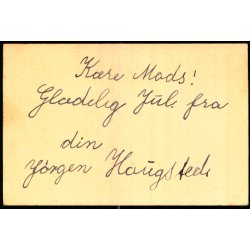 Kære Mads!
Glædelig Jul fra
din
Jörgen Haugsted